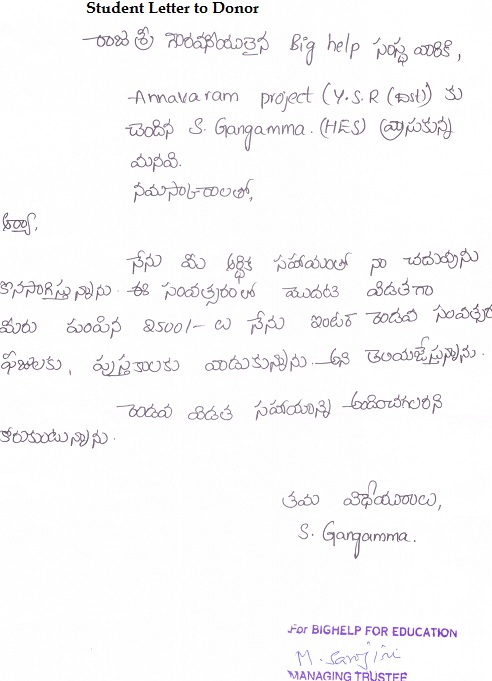 Student Letter to Donor
రాజశ్రీ గౌరవనీయులైన Big help సంస్థ వారికి,
Annavaram project (Y.S.R (Dist)) కు
చెందిన S. Gangamma. (HES) వ్రాసుకున్న
మనవి.
నమస్కారాలతో,
ఆర్యా,
నేను మీ ఆర్థిక సహాయంతో నా చదువును
కొనసాగిస్తున్నాను. ఈ సంవత్సరంలో మొదటి విడతగా
మీరు పంపిన 2500/- లు నేను ఇంటర్ రెండవ సంవత్సర
ఫీజులకు, పుస్తకాలకు వాడుకున్నాను. అని తెలియజేస్తున్నాను.
రెండవ విడత సహాయాన్ని అందించగలరని
కోరుకుంటున్నాను.
తమ విధేయురాలు,
S. Gangamma.
For BIGHELP FOR EDUCATION
M. Sarojini
MANAGING TRUSTEE